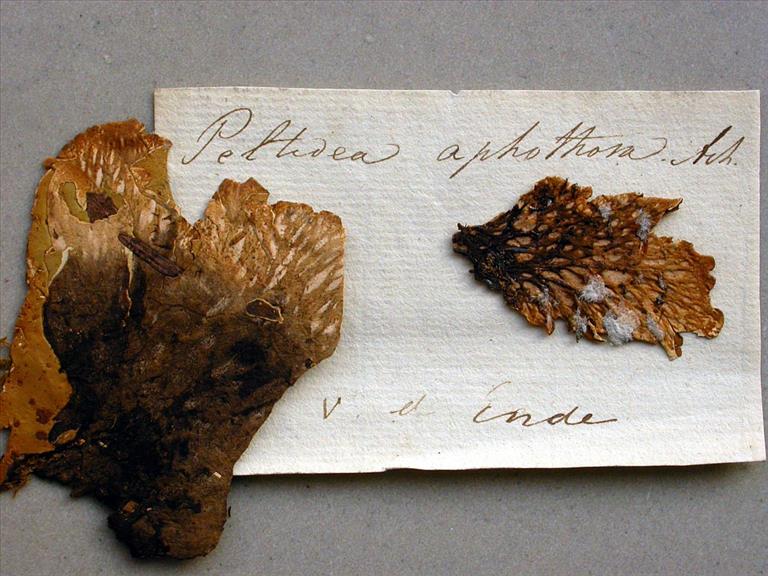 Peltidea aphothosa. Ach.
v. d Ende